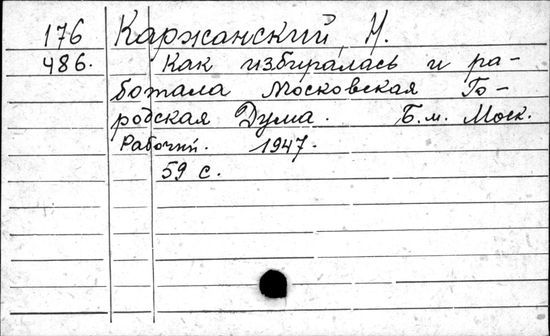 176 Каржанский, Н.
486. Как избиралась и ра-
ботала Московская Го-
родская Дума. Б.м. Моск.
Рабочий. 1947.
59 с.